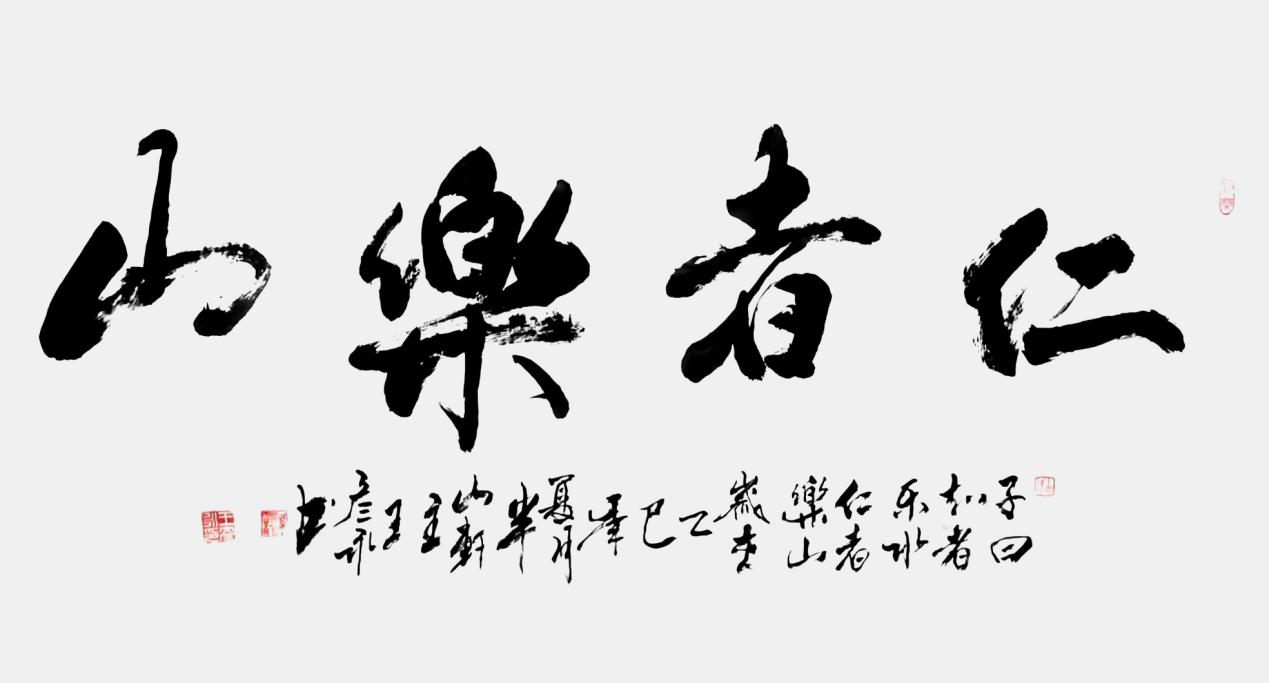 仁者樂山
子曰知者乐水仁者樂山歲在乙巳年夏月半山軒主王彦永书